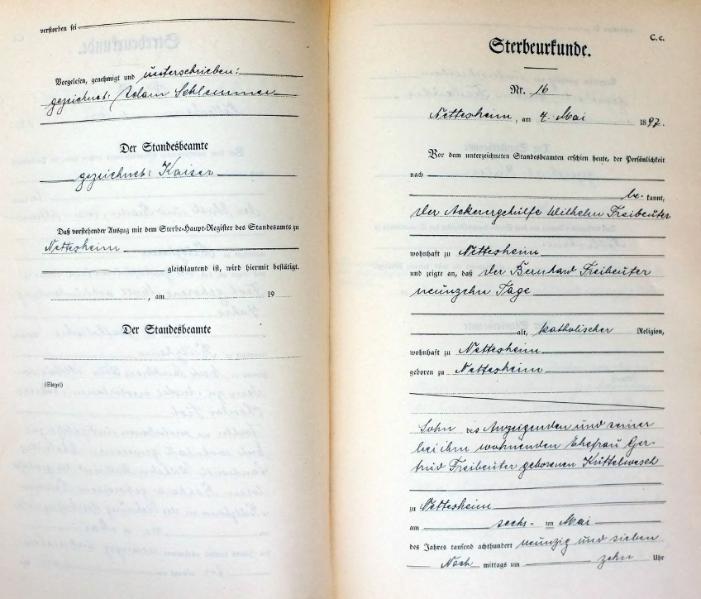 verstorben sei
Vorgelesen, genehmigt und unterschrieben:
gezeichnet: Adam Schlemmer
Der Standesbeamte
gezeichnet: Kaiser
Daß vorstehender Auszug mit dem Sterbe-Haupt-Register des Standesamts zu
Nettersheim
gleichlautend ist, wird hiermit bestätigt.
, am 19
Der Standesbeamte
(Siegel)
C. c.
Sterbeurkunde.
Nr. 16
Nettersheim, am 7. Mai 1897.
Vor dem unterzeichneten Standesbeamten erschien heute, der Persönlichkeit
nach
be- kannt,
der Ackerergehülfe Wilhelm Freibeuter
wohnhaft zu Nettersheim
und zeigte an, daß der Bernhard Freibeuter
neunzehn Tage
alt, katholischer Religion,
wohnhaft zu Nettersheim
geboren zu Nettersheim
Sohn des Anzeigenden und seiner
bei ihm wohnenden Ehefrau Ger-
trud Freibeuter geborenen Küttelwesch
zu Nettersheim
am sechs- ten Mai
des Jahres tausend achthundert neunzig und sieben
Nach mittags um zehn Uhr